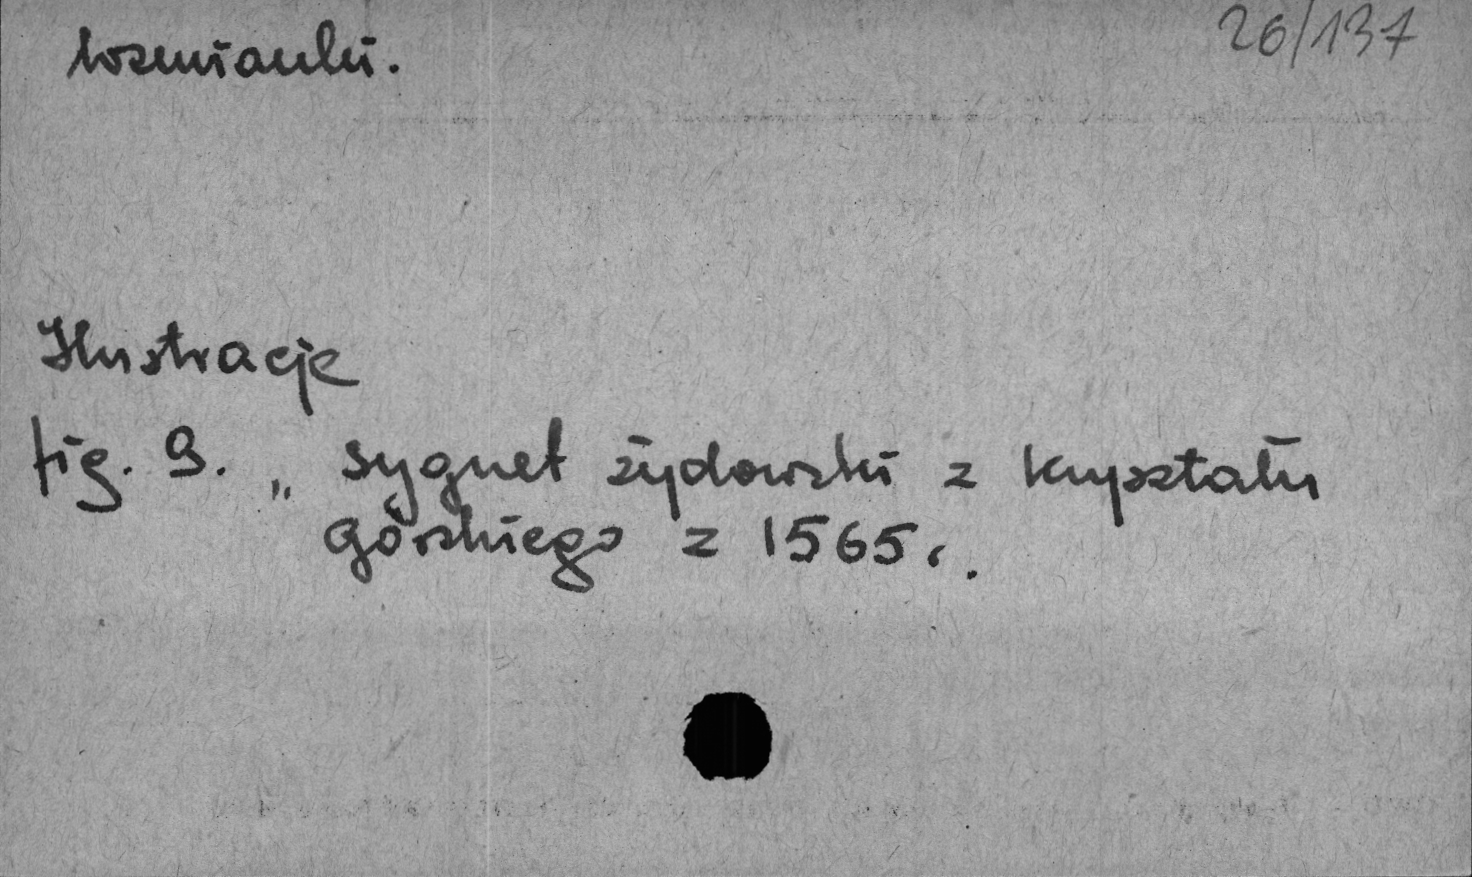 26/137
wzmianki.
Ilustracje
fig. 9. „ sygnet żydowski z kryształu
górskiego z 1565r.